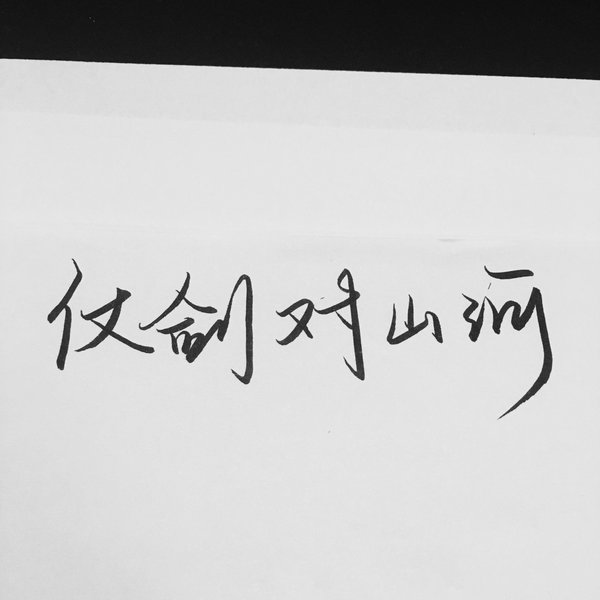 仗剑对山河